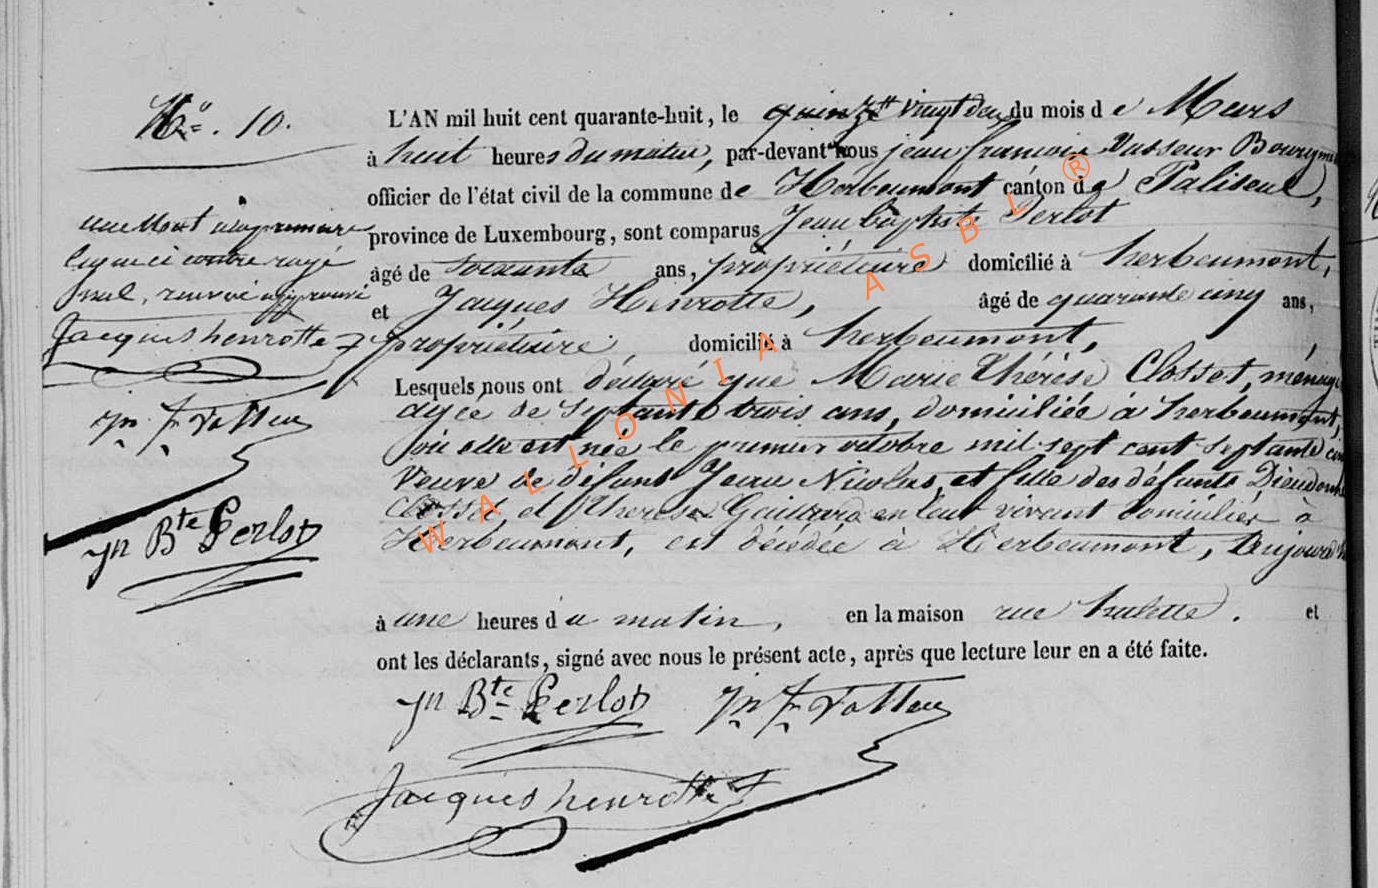 N.º 10.
L'AN mil huit cent quarante-huit, le quinze vingt deux du mois de Mars
à huit heures du matin, par-devant nous jean françois Vasseur Bourgme
officier de l'état civil de la commune de Herbeumont canton de Paliseul,
province de Luxembourg, sont comparus Jean baptiste Perlot
âgé de soixante ans, propriétaire domicilié à herbeumont,
et Jacques Henrotte, âgé de quarante cinq ans,
propriétaire domicilié à herbeumont,
Lesquels nous ont déclaré que Marie Thérèse Closset, ménag
agée de septante trois ans, domiciliée à herbeumont,
où elle est née le premier octobre mil sept cent septante
Veuve de défunt Jean Nicolas, et fille des défunts Dieudonn
Closset, et Therese Gaillard en leur vivant domiciliés à
Herbeumont, est décédée à Herbeumont, aujourd'h
à une heures du matin, en la maison rue hulette. et
ont les déclarants, signé avec nous le présent acte, après que lecture leur en a été faite.
un mot à la premiere
ligne ci contre rayé
nul, renvoi approuvé
Jacques henrotte
Jn Bte Perlot
Jn Bte Perlot
Jacques henrotte
WALLONIA ASBL ®